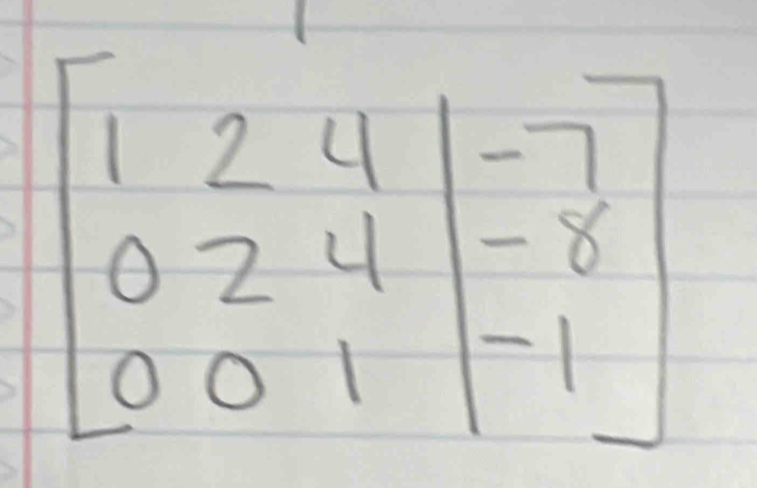 1 2 4 | -7
0 2 4 | -8
0 0 1 | -1